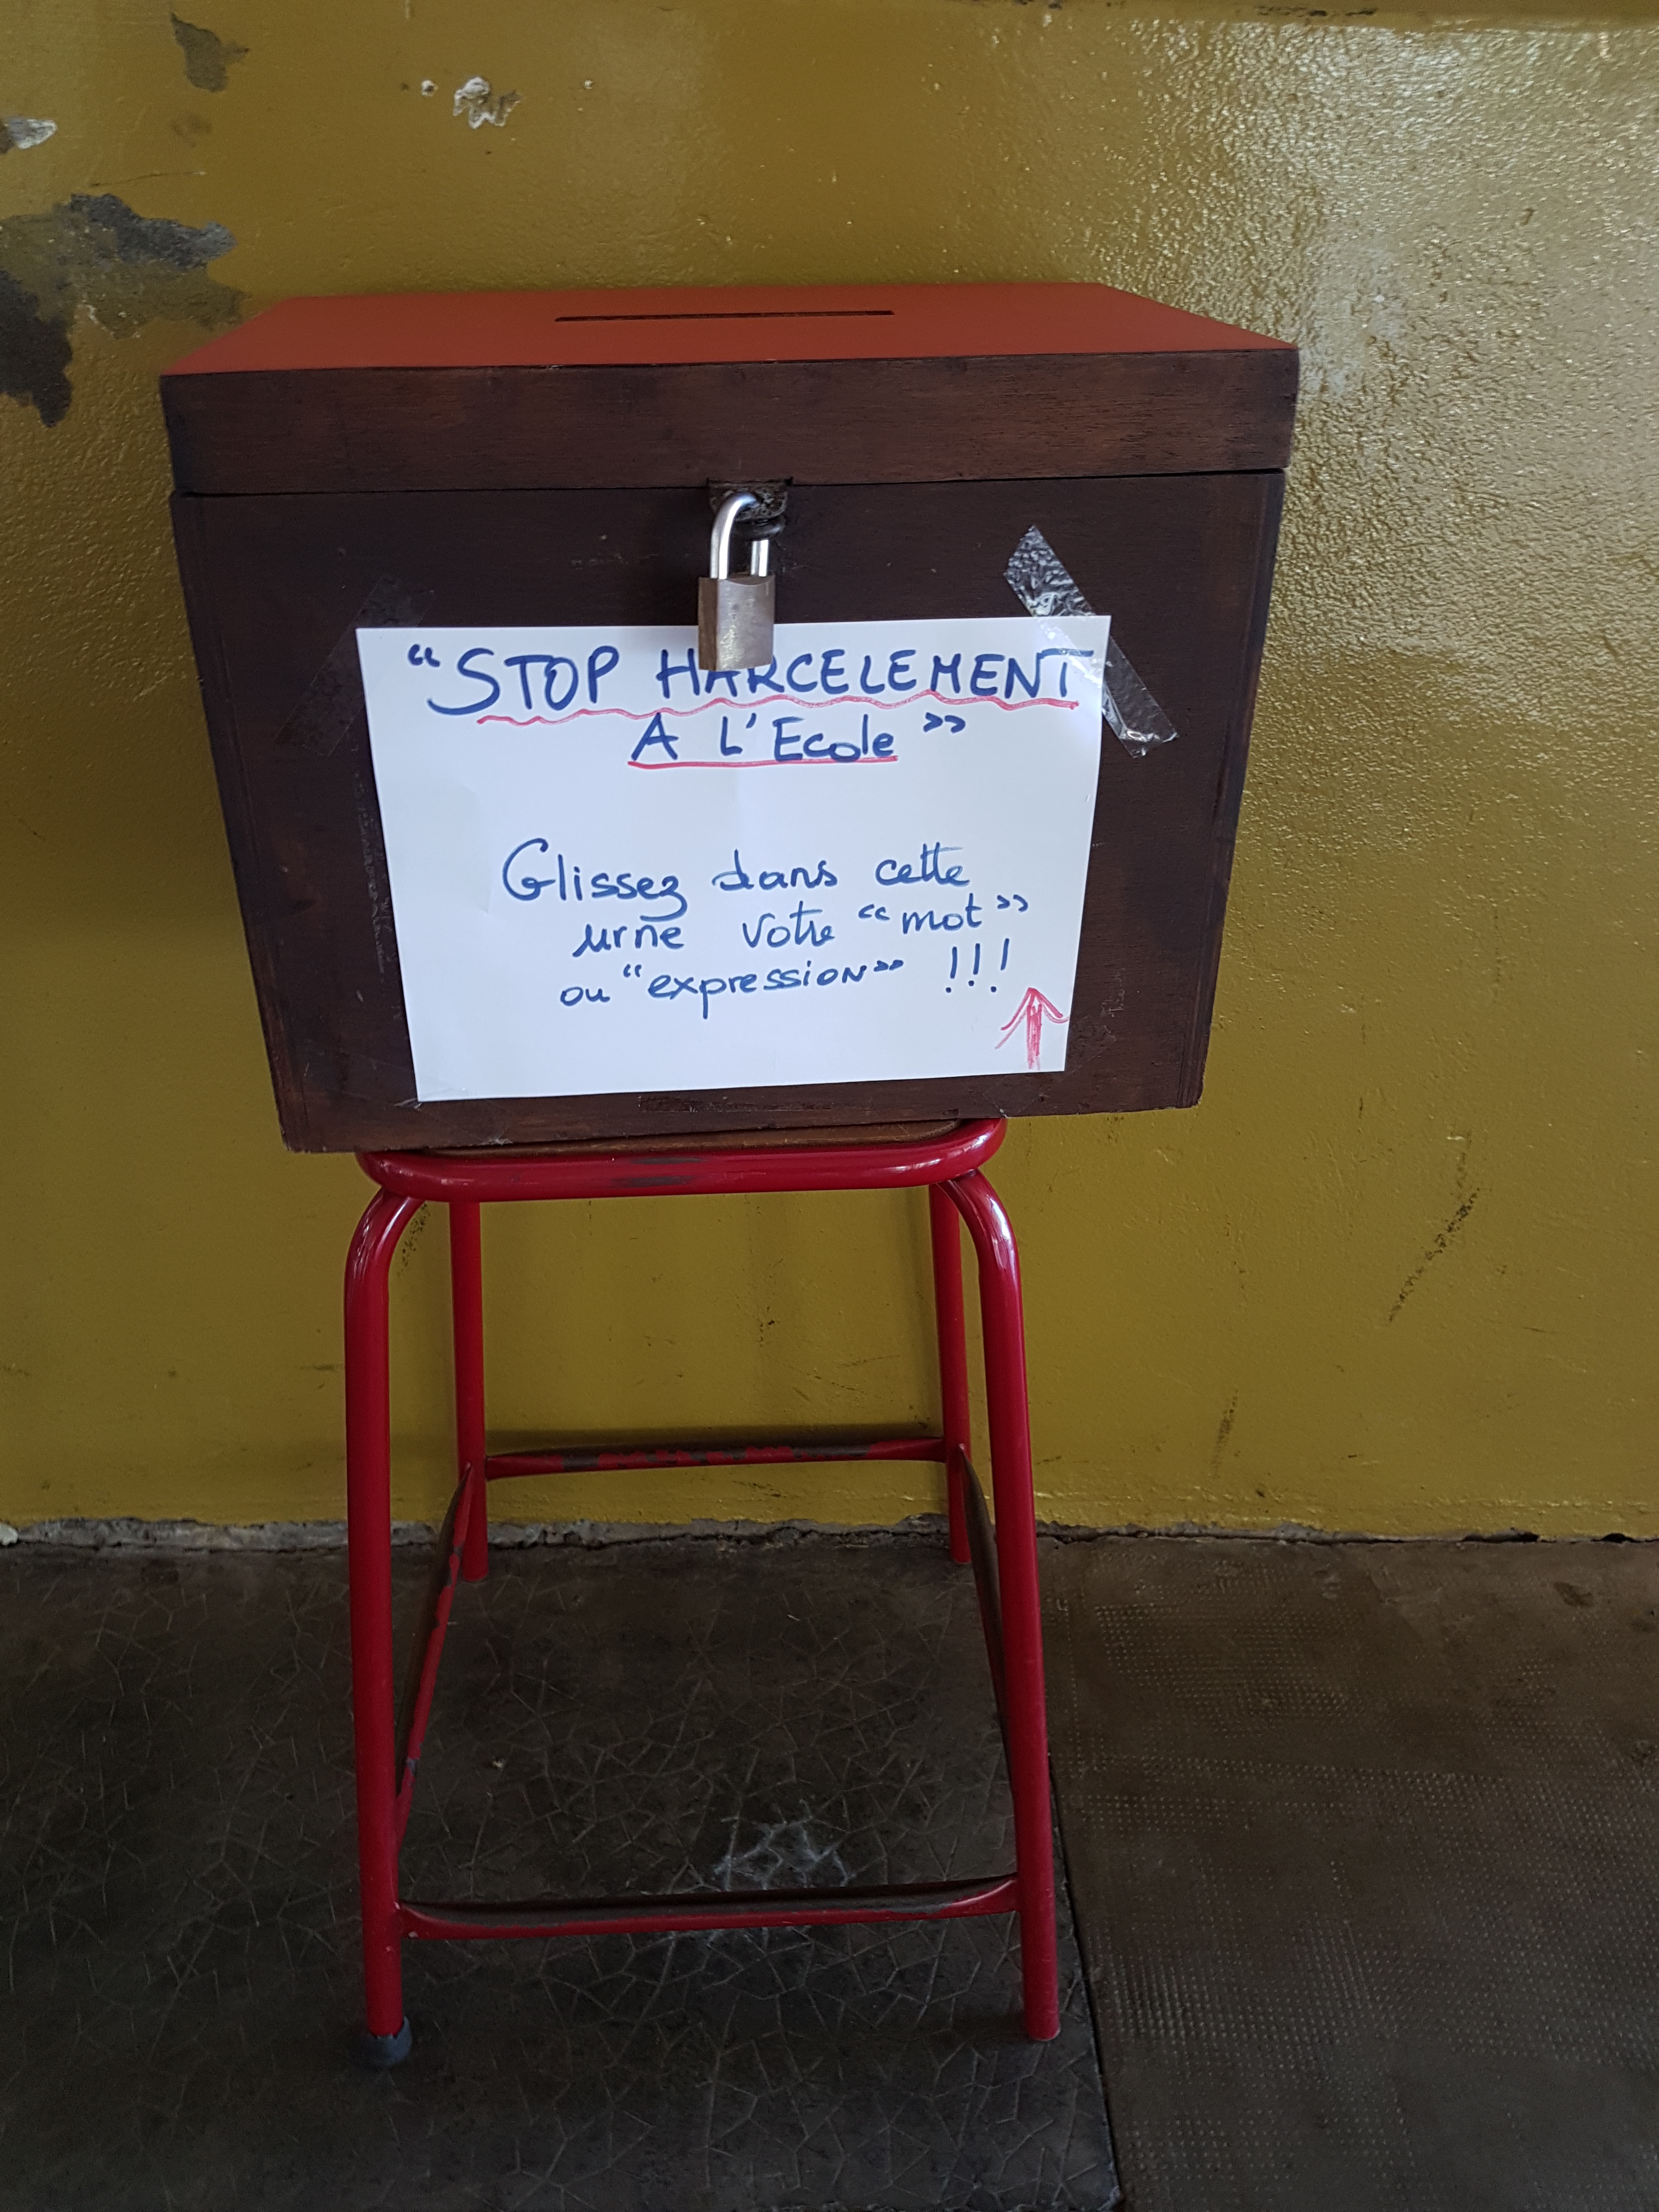 “STOP HARCELEMENT
A L'Ecole”
Glissez dans cette
urne votre “mot”
ou “expression” !!!